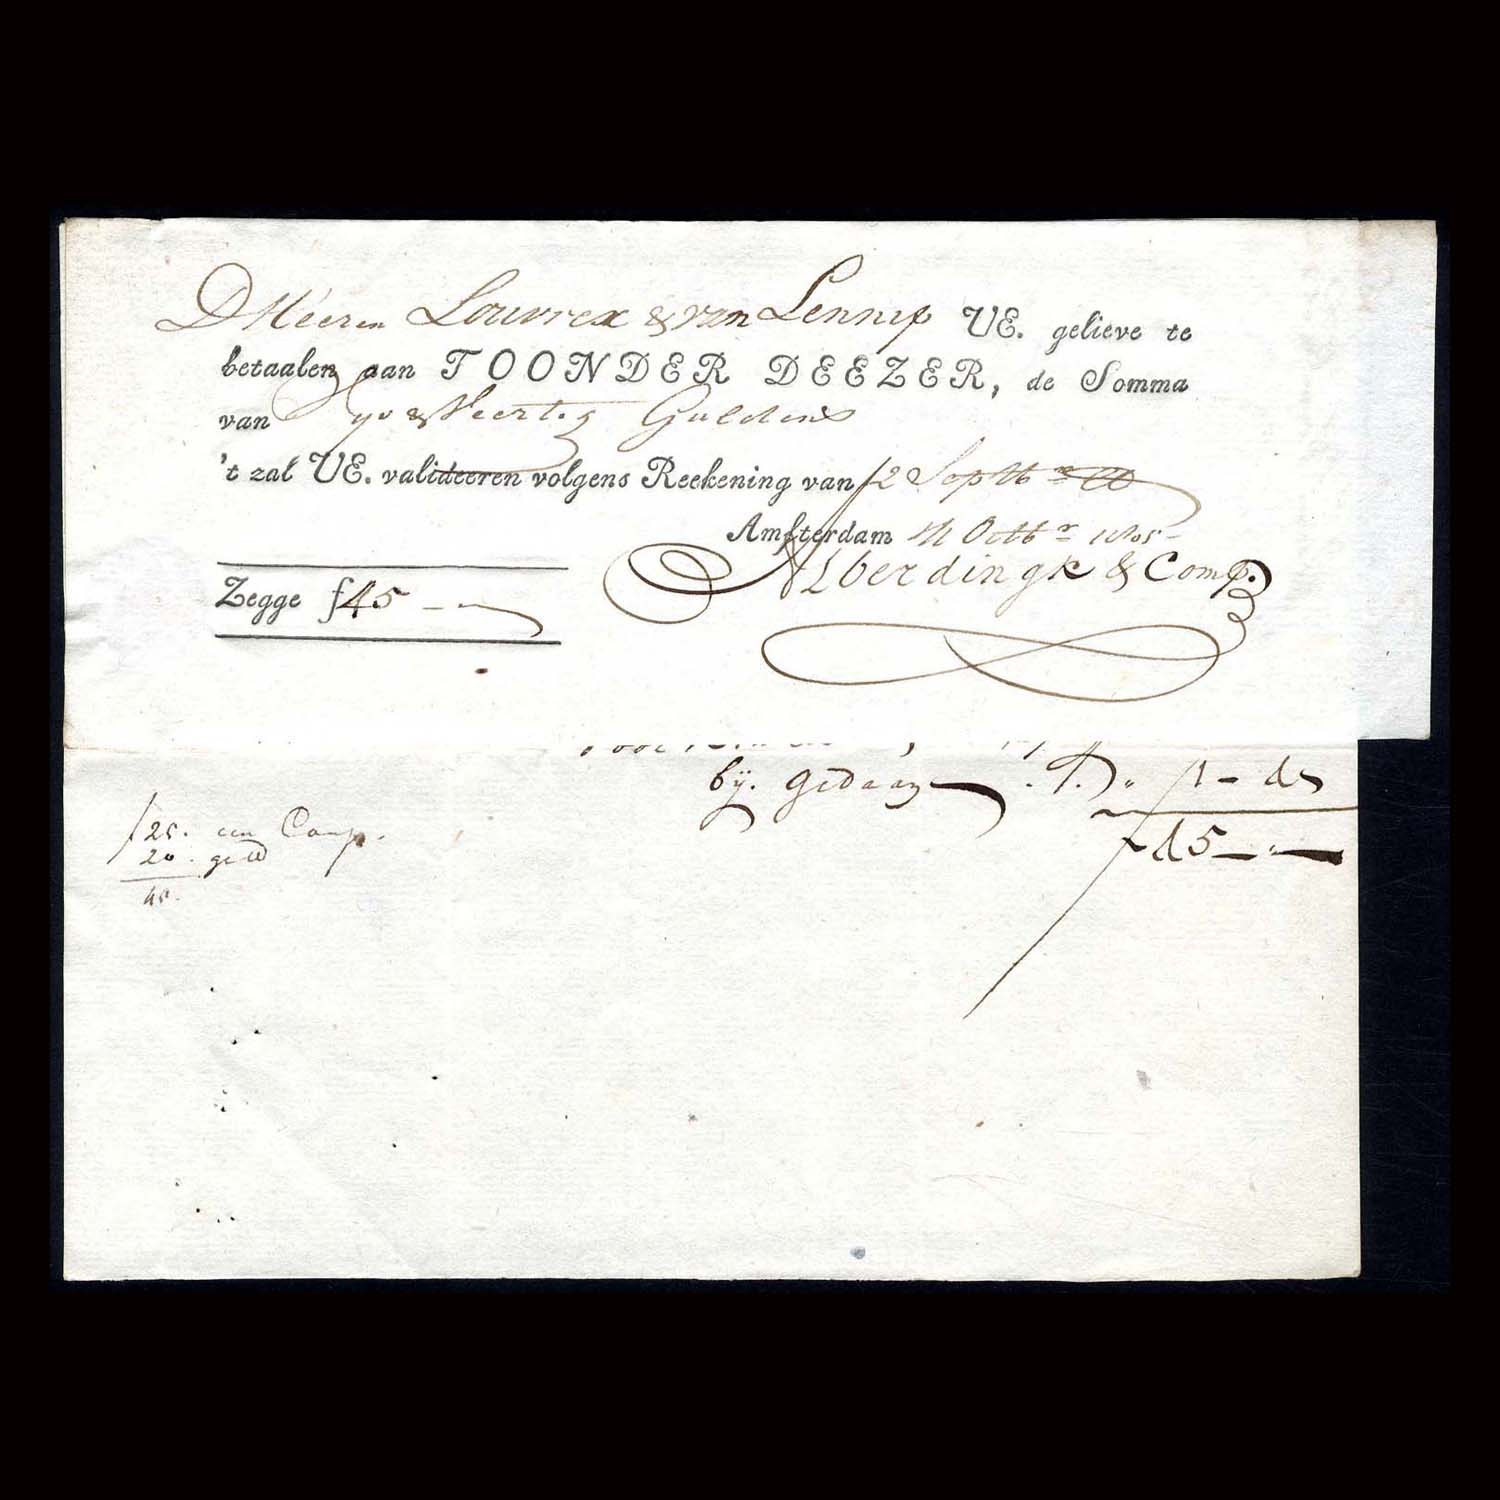 DHeeren Louvrex & van Lennep UE. gelieve te
betaalen aan TOONDER DEEZER, de Somma
van Vyf & Veertig Guldens
't zal UE. valideeren volgens Reekening van 12 Septb
Amsterdam Octbr 1805
Alberdingk & Comp.
Zegge f45
bij.
f 25. een Comp.
20. geld
45.
45